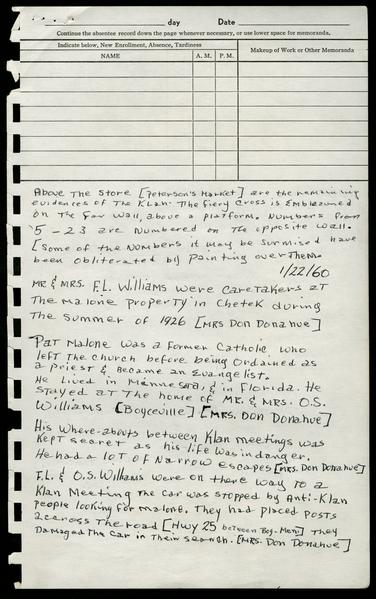 day Date
Continue the absentee record down the page whenever necessary, or use lower space for memoranda.
Indicate below, New Enrollment, Absence, Tardiness
Makeup of Work or Other Memoranda
NAME A. M. P. M.
Above The Store [Peterson's Market] are the remaining
evidences of The Klan. The fiery cross is Emblazoned
on The far wall, above a platform. Numbers from
5 - 23 are numbered on The opposite wall.
[Some of the numbers it may be surmised have
been obliterated by painting over Them.
1/22/60
MR & MRS. F.L. Williams were caretakers at
The Malone property in Chetek during
The summer of 1926 [MRS Don Donahue]
Pat Malone was a former Catholic who
left The church before being ordained as
a priest & became an Evangelist.
He lived in Minnesota, & in Florida. He
stayed at The home of MR. & MRS. O.S.
Williams [Boyceville] [MRS. Don Donahue]
His where-abouts between Klan meetings was
kept secret as his life was in danger.
He had a lot of narrow escapes [MRS. Don Donahue]
F.L. & O.S. Williams were on there way to a
Klan Meeting The car was stopped by Anti-Klan
people looking for Malone. They had placed posts
accross The road [Hwy 25 between Boy-Men] They
Damaged The car in Their search. [MRS. Don Donahue]